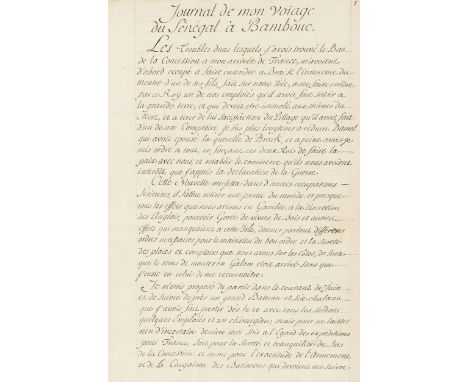 1
Journal de mon Voiage
du Sénégal à Bambouc.
Les Troubles dans lesquels j'avois trouvé le Bas
de la Concession a mon arrivée de France, m'avoient
d'abord occupé a faire entendre a Brak l'innocence du
meurtre d'un de ses fils, fait sur notre Isle, a me faire rendre
par ce Roy un de nos employés qu'il avoit fait saisir a
la grande terre, et qui devoit etre immolé aux manes du
Mort, et a tirer de lui Satisfaction du Pillage qu'il avoit fait
d'un de nos Comptoirs. Je fus plus longtems a réduire Damel
qui avoit epousé la querelle de Brack, et a peine avois je
mis ordre a tout, en forçant ces deux Rois de faire la
paix avec nous, et retablir le commerce qu'ils nous avoient
interdit, que j'appris la déclaration de la Guerre.
Cette Nouvelle me jetta dans d'autres occupations
serieuses, il fallut retirer une partie du monde et presque
tous les effets que nous avions en Gambie a la discretion
des Anglois, pourvoir Gorée de vivres, de Bois et autres
effets qui manquoient a cette Isle, donner partout differens
ordres necessaires pour le maintien du bon ordre et la sureté
des places et comptoirs que nous avons sur les côtes, de sorte
que le tems de monter en Galam etoit arrivé sans que
j'eusse eu celui de me reconnoitre.
Je m'etois proposé de partir dans le courant de Juin
et de suivre de près un grand Bateau et six chalans
que j'avois fait partir dès le 20 avec tous les soldats
quelques Employés et un chirurgien; mais pour ne laisser
rien d'incertain derriere moi soit a l'égard des expeditions
pour France, soit pour la sureté et tranquilité du Bas
de la Concession et meme pour l'exactitude de l'Armement
et de la Cargaison des Batimens qui devoient me suivre